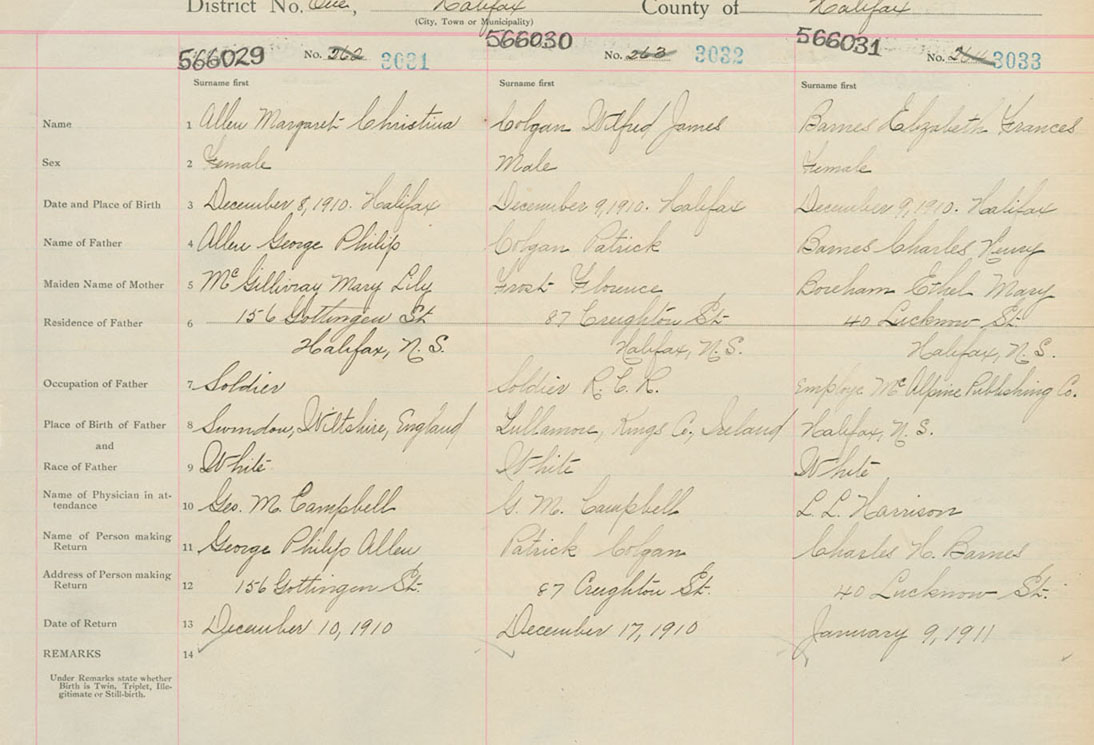 District No. One, Halifax County of Halifax
(City, Town or Municipality)
566029 No. 262 3031 566030 No. 263 3032 566031 No. 3033
Surname first Surname first Surname first
Name 1 Allen Margaret Christina Colgan Wilfred James Barnes Elizabeth Frances
Sex 2 Female Male Female
Date and Place of Birth 3 December 8, 1910. Halifax December 9, 1910. Halifax December 9, 1910. Halifax
Name of Father 4 Allen George Philip Colgan Patrick Barnes Charles Henry
Maiden Name of Mother 5 McGillivray Mary Lily Frost Florence Boreham Ethel Mary
Residence of Father 6 156 Gottingen St 87 Creighton St. 40 Lucknow St.
Halifax, N.S. Halifax, N.S. Halifax, N.S.
Occupation of Father 7 Soldier Soldier R.C.R. Employe McAlpine Publishing Co.
Place of Birth of Father 8 Swindon, Wiltshire, England Tullamore, Kings Co, Ireland Halifax, N.S.
and
Race of Father 9 White White White
Name of Physician in at-
tendance 10 Geo. M. Campbell G. M. Campbell L. L. Harrison
Name of Person making
Return 11 George Philip Allen Patrick Colgan Charles H. Barnes
Address of Person making
Return 12 156 Gottingen St. 87 Creighton St. 40 Lucknow St.
Date of Return 13 December 10, 1910 December 17, 1910 January 9, 1911
REMARKS 14
Under Remarks state whether
Birth is Twin, Triplet, Ille-
gitimate or Still-birth.